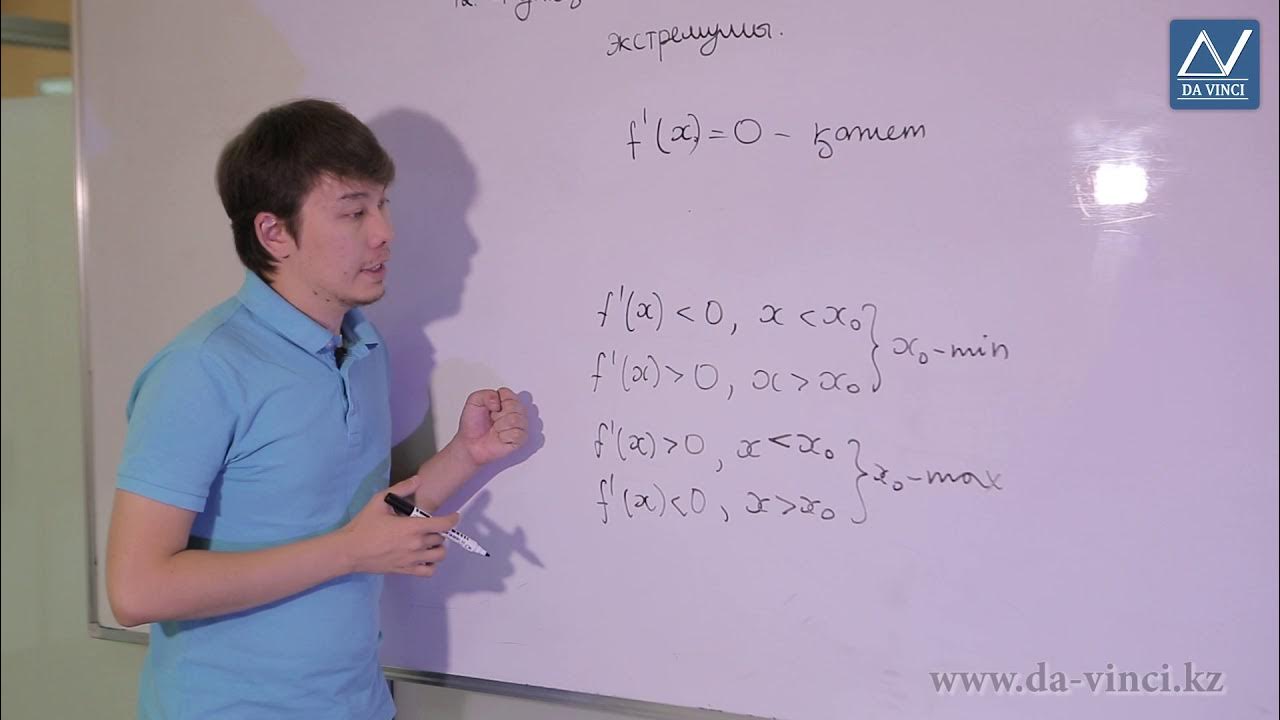 экстремумы.
f'(x) = 0 – қажет
f'(x) < 0, x < x₀
f'(x) > 0, x > x₀
} x₀ – min
f'(x) > 0, x < x₀
f'(x) < 0, x > x₀
} x₀ – max
DA VINCI
www.da-vinci.kz